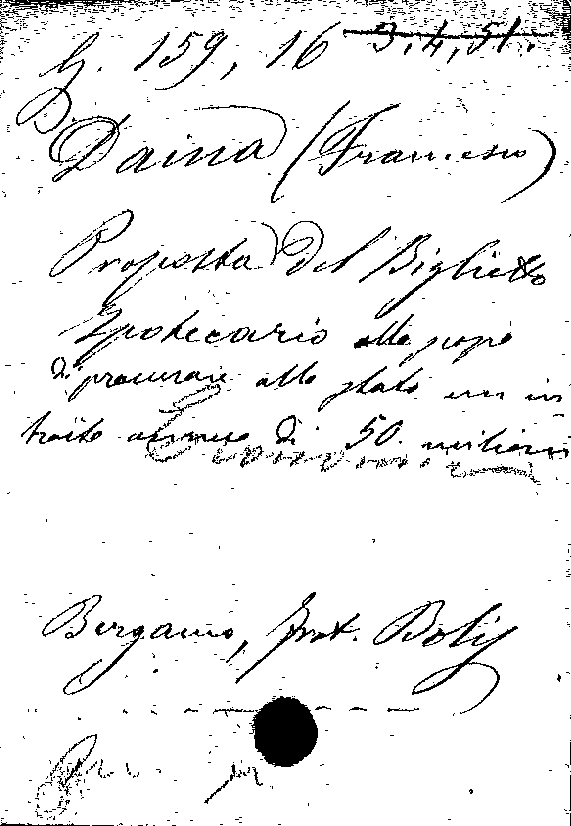 G. 159, 16 3.4,51.
B.
Daina (Francesco)
Proposta del Biglietto
Ipotecario allo scopo
di procurare allo stato un in
troito annuo di 50 milioni
Economia
Bergamo, frat. Bolis